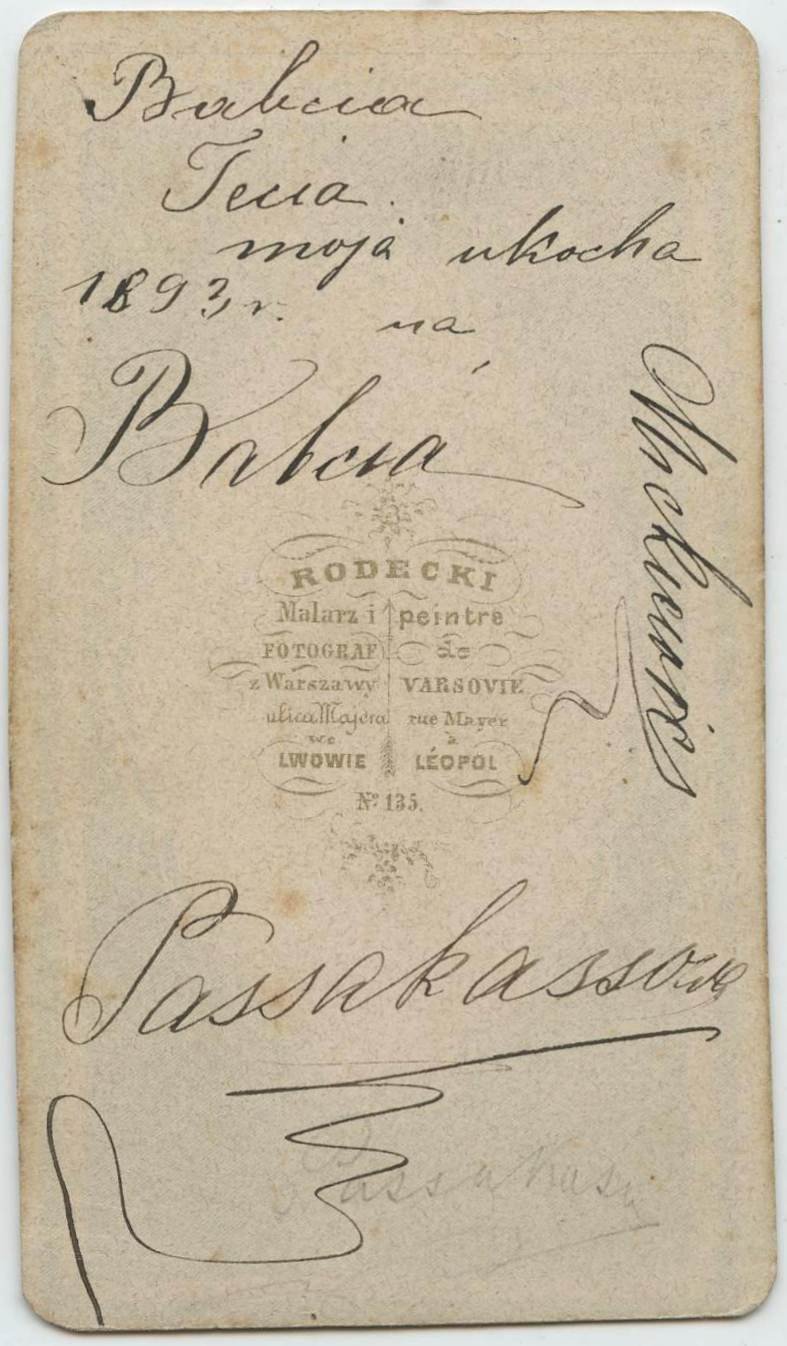 Babcia
Tecia.
moja ukocha
1893 r. na
Babcia
RODECKI
Malarz i peintre
FOTOGRAF de
z Warszawy VARSOVIE
ulica Majera rue Mayer
we à
LWOWIE LÉOPOL
Nº 135.
Passakassowa
Passakass